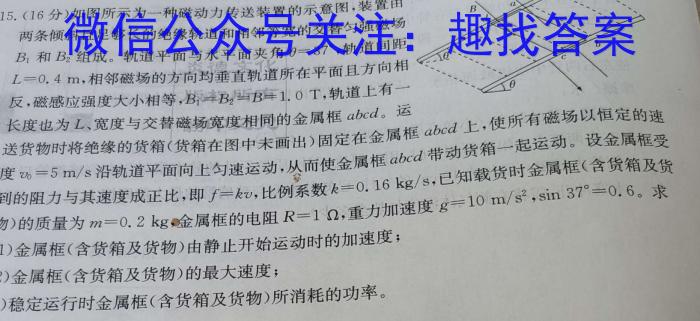 15.(16分)如图所示为一种磁动力传送装置的示意图,装置由
两条倾斜足够长的绝缘轨道和相邻等宽的交替匀强磁场
微信公众号关注:趣找答案
B₁和B₂组成。轨道平面与水平面夹角θ=37°,轨道间距
L=0.4 m,相邻磁场的方向均垂直轨道所在平面且方向相
反,磁感应强度大小相等,B₁=B₂=B=1.0 T,轨道上有一
长度也为L、宽度与交替磁场宽度相同的金属框abcd。运
送货物时将绝缘的货箱(货箱在图中未画出)固定在金属框abcd上,使所有磁场以恒定的速
度v₀=5 m/s沿轨道平面向上匀速运动,从而使金属框abcd带动货箱一起运动。设金属框受
到的阻力与其速度成正比,即f=kv,比例系数k=0.16 kg/s,已知载货时金属框(含货箱及货
物)的质量为m=0.2 kg,金属框的电阻R=1 Ω,重力加速度g=10 m/s²,sin 37°=0.6。求
1)金属框(含货箱及货物)由静止开始运动时的加速度;
2)金属框(含货箱及货物)的最大速度;
)稳定运行时金属框(含货箱及货物)所消耗的功率。